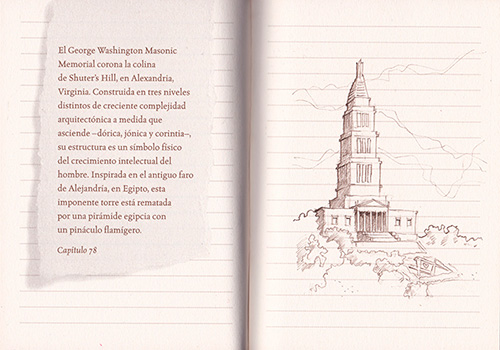 El George Washington Masonic
Memorial corona la colina
de Shuter's Hill, en Alexandria,
Virginia. Construida en tres niveles
distintos de creciente complejidad
arquitectónica a medida que
asciende –dórica, jónica y corintia–,
su estructura es un símbolo físico
del crecimiento intelectual del
hombre. Inspirada en el antiguo faro
de Alejandría, en Egipto, esta
imponente torre está rematada
por una pirámide egipcia con
un pináculo flamígero.
Capítulo 78